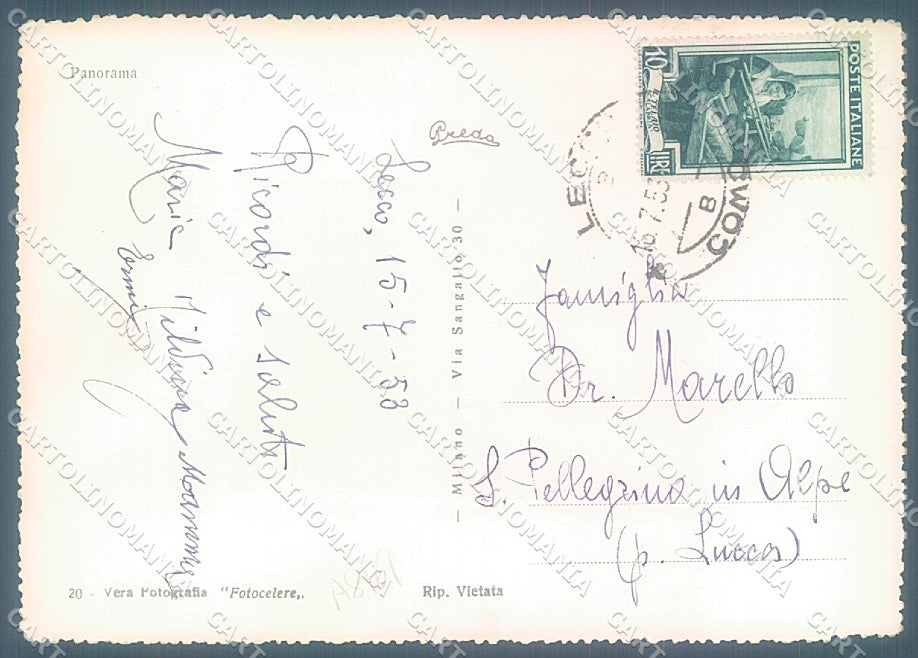 Panorama
Lecco, 15-7-53
Ricordi e saluti
Maria
20 - Vera Fotografia "Fotocelere„
Rip. Vietata
— Milano — Via Sangallo 30 —
POSTE ITALIANE
10
LIRE
16.7.53
Famiglia
Dr. Marello
S. Pellegrino in Alpe
(p. Lucca)
CARTOLINOMANIA